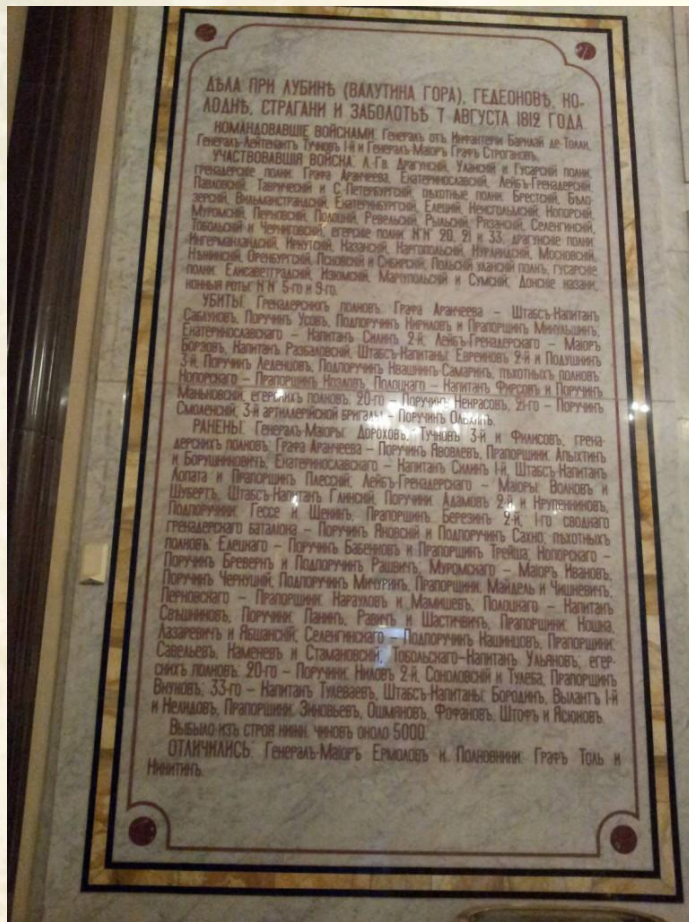 ДѢЛА ПРИ ЛУБИНѢ (ВАЛУТИНА ГОРА), ГЕДЕОНОВѢ, КО-
ЛОДНѢ, СТРАГАНИ И ЗАБОЛОТЬѢ 7 АВГУСТА 1812 ГОДА.
КОМАНДОВАВШІЕ ВОЙСКАМИ: Генералъ отъ Инфантеріи Барклай де-Толли,
Генералъ-Лейтенантъ Тучковъ 1-й и Генералъ-Маіоръ Графъ Строгановъ.
УЧАСТВОВАВШІЯ ВОЙСКА: Л.-Гв. Драгунскій, Уланскій и Гусарскій полки;
гренадерскіе полки: Графа Аракчеева, Екатеринославскій, Лейбъ-Гренадерскій,
Павловскій, Таврическій и С.-Петербургскій; пѣхотные полки: Брестскій, Бѣло-
зерскій, Вильманстрандскій, Екатеринбургскій, Елецкій, Кексгольмскій, Копорскій,
Муромскій, Перновскій, Полоцкій, Ревельскій, Рыльскій, Рязанскій, Селенгинскій,
Тобольскій и Черниговскій; егерскіе полки: №№ 20, 21 и 33; драгунскіе полки:
Ингерманландскій, Иркутскій, Казанскій, Каргопольскій, Курляндскій, Московскій,
Нѣжинскій, Оренбургскій, Псковскій и Сибирскій; Польскій уланскій полкъ; гусарскіе
полки: Елисаветградскій, Изюмскій, Маріупольскій и Сумскій; Донскіе казаки;
конныя роты: №№ 5-го и 9-го.
УБИТЫ: Гренадерскихъ полковъ: Графа Аракчеева – Штабсъ-Капитанъ
Саблуковъ, Поручикъ Усовъ, Подпоручикъ Кириловъ и Прапорщикъ Микульшинъ;
Екатеринославскаго – Капитанъ Силинъ 2-й; Лейбъ-Гренадерскаго – Маіоръ
Борзовъ, Капитанъ Разваловскій, Штабсъ-Капитаны: Евреиновъ 2-й и Подушкинъ
3-й, Поручикъ Леденцовъ, Подпоручикъ Квашнинъ-Самаринъ; пѣхотныхъ полковъ:
Копорскаго – Прапорщикъ Козловъ; Полоцкаго – Капитанъ Фирсовъ и Поручикъ
Маньковскій; егерскихъ полковъ: 20-го – Поручикъ Некрасовъ; 21-го – Поручикъ
Смоленскій; 3-й артиллерійской бригады – Поручикъ
РАНЕНЫ: Генералъ-Маіоры: Дороховъ, Тучковъ 3-й и Филисовъ; грена-
дерскихъ полковъ: Графа Аракчеева – Поручикъ Яковлевъ, Прапорщики: Апыхтинъ
и Борушниковичъ; Екатеринославскаго – Капитанъ Силинъ 1-й, Штабсъ-Капитанъ
Лопата и Прапорщикъ Плесскій; Лейбъ-Гренадерскаго – Маіоры: Волковъ и
Шубертъ, Штабсъ-Капитанъ Глинскій, Поручики: Адамовъ 2-й и Крупенниковъ,
Подпоручики: Гессе и Щекинъ, Прапорщикъ Березинъ 2-й; 1-го своднаго
гренадерскаго баталіона – Поручикъ Яновскій и Подпоручикъ Сахно; пѣхотныхъ
полковъ: Елецкаго – Поручикъ Бабенковъ и Прапорщикъ Трейша; Копорскаго –
Поручикъ Бревернъ и Подпоручикъ Рашвичъ; Муромскаго – Маіоръ Ивановъ,
Поручикъ Чернуцкій, Подпоручикъ Мичуринъ, Прапорщики: Майдель и Чишкевичъ;
Перновскаго – Прапорщики: Карауловъ и Мамишевъ; Полоцкаго – Капитанъ
Свѣшниковъ, Поручики: Панинъ, Равичъ и Шастичвичъ, Прапорщики: Кошка,
Лазаревичъ и Ябшанскій; Селенгинскаго – Подпоручикъ Кашинцовъ, Прапорщики:
Савельевъ, Каменевъ и Стамановскій; Тобольскаго–Капитанъ Ульяновъ; егер-
скихъ полковъ: 20-го – Поручики: Киловъ 2-й, Соколовскій и Тулеба, Прапорщикъ
Внуковъ; 33-го – Капитанъ Тулеваевъ, Штабсъ-Капитаны: Бородинъ, Вылантъ 1-й
и Нелидовъ, Прапорщики: Зиновьевъ, Ошмяновъ, Фофановъ, Штофъ и Ясюковъ.
Выбыло изъ строя нижн. чиновъ около 5000.
ОТЛИЧИЛИСЬ: Генералъ-Маіоръ Ермоловъ и Полковники: Графъ Толь и
Никитинъ.